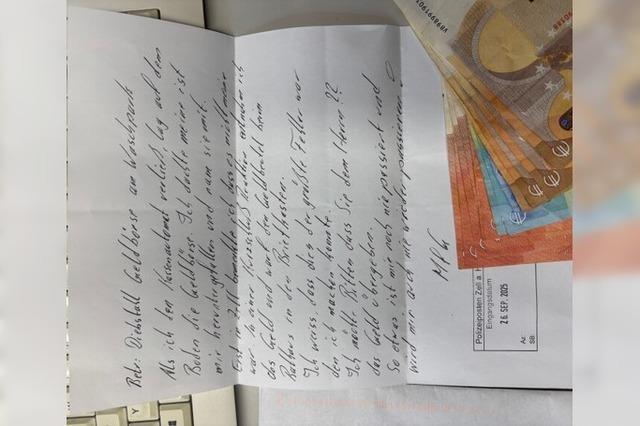 Betr: Diebstahl Geldbörse am Waschpark
Als ich den Kassenautomat verließ, lag auf dem
Boden die Geldbörse. Ich dachte meine ist
mir heruntergefallen und nam sie mit.
Erst in Zell bemerkte ich, dass es nicht meine
war. In einer Kurzschluß Reaktion entnahm ich
das Geld und warf den Geldbeutel beim
Rathaus in den Briefkasten.
Ich weiss, dass dies der größte Fehler war
den ich machen konnte.
Ich möchte Bitten dass Sie dem Herrn ??
das Geld übergeben.
So etwas ist mir noch nie passiert und
wird mir auch nie wieder passieren.
MfG
Polizeiposten Zell a. H
Eingangsdatum
26. SEP. 2025
Az:
SB